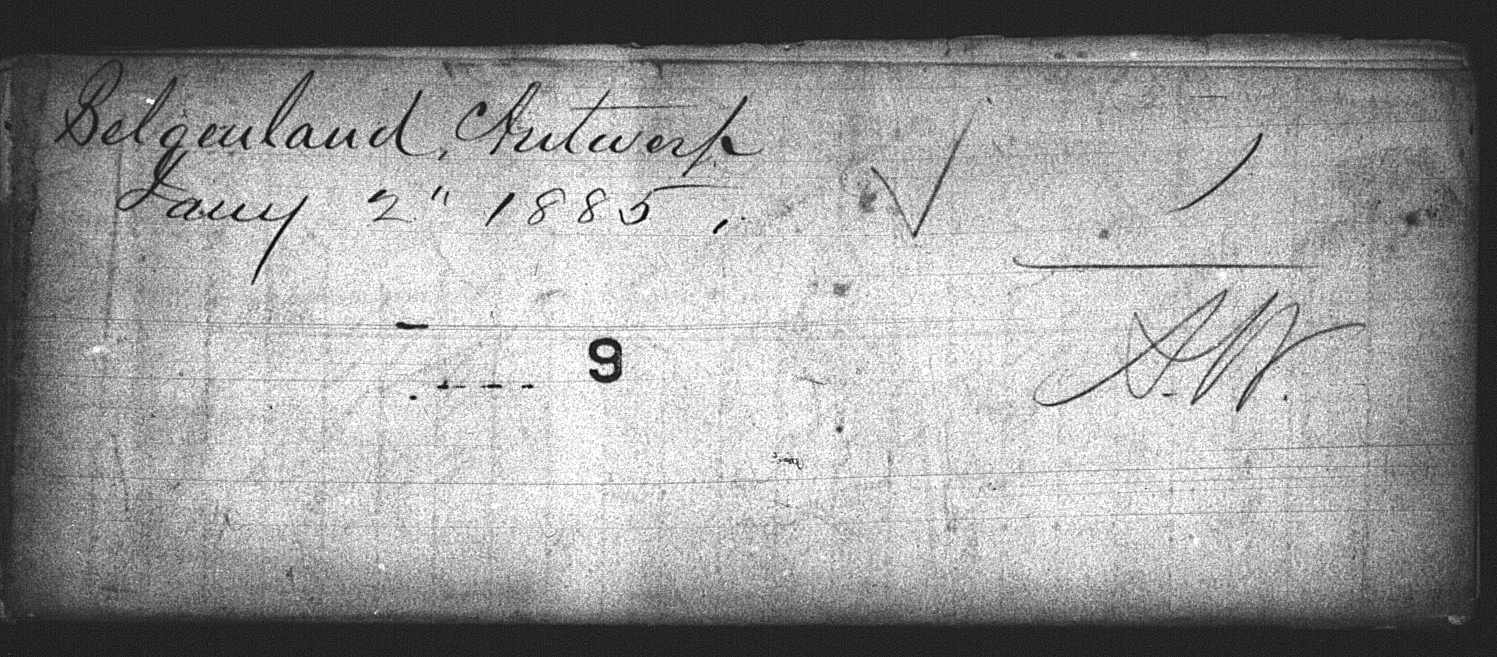 Belgenland, Antwerp
Jany 2" 1885,
9